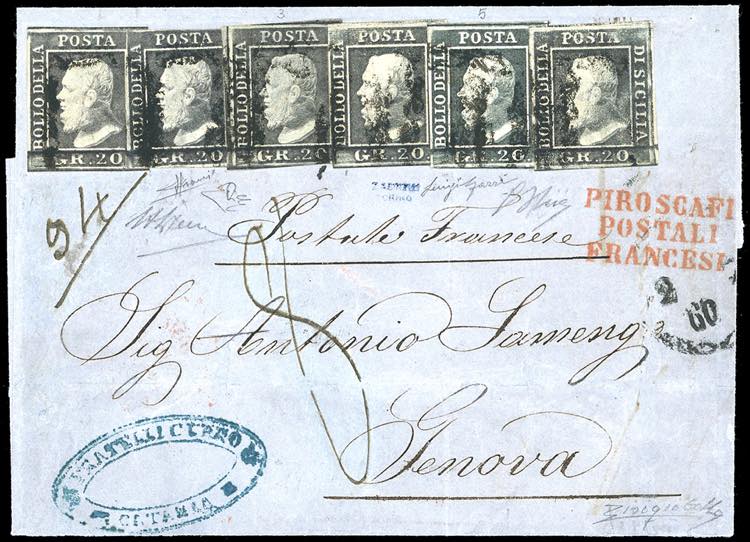 3 5
POSTA POSTA POSTA POSTA POSTA POSTA
BOLLO DELLA BOLLO DELLA BOLLO DELLA BOLLO DELLA BOLLO DELLA BOLLO DELLA DI SICILIA
GR.20 GR.20 GR.20 GR.20 GR.20 GR.20
94
Postale Francese
PIROSCAFI
POSTALI
FRANCESI
2
GO
Sig Antonio Sameng
Genova
FRATELLI
CATANIA